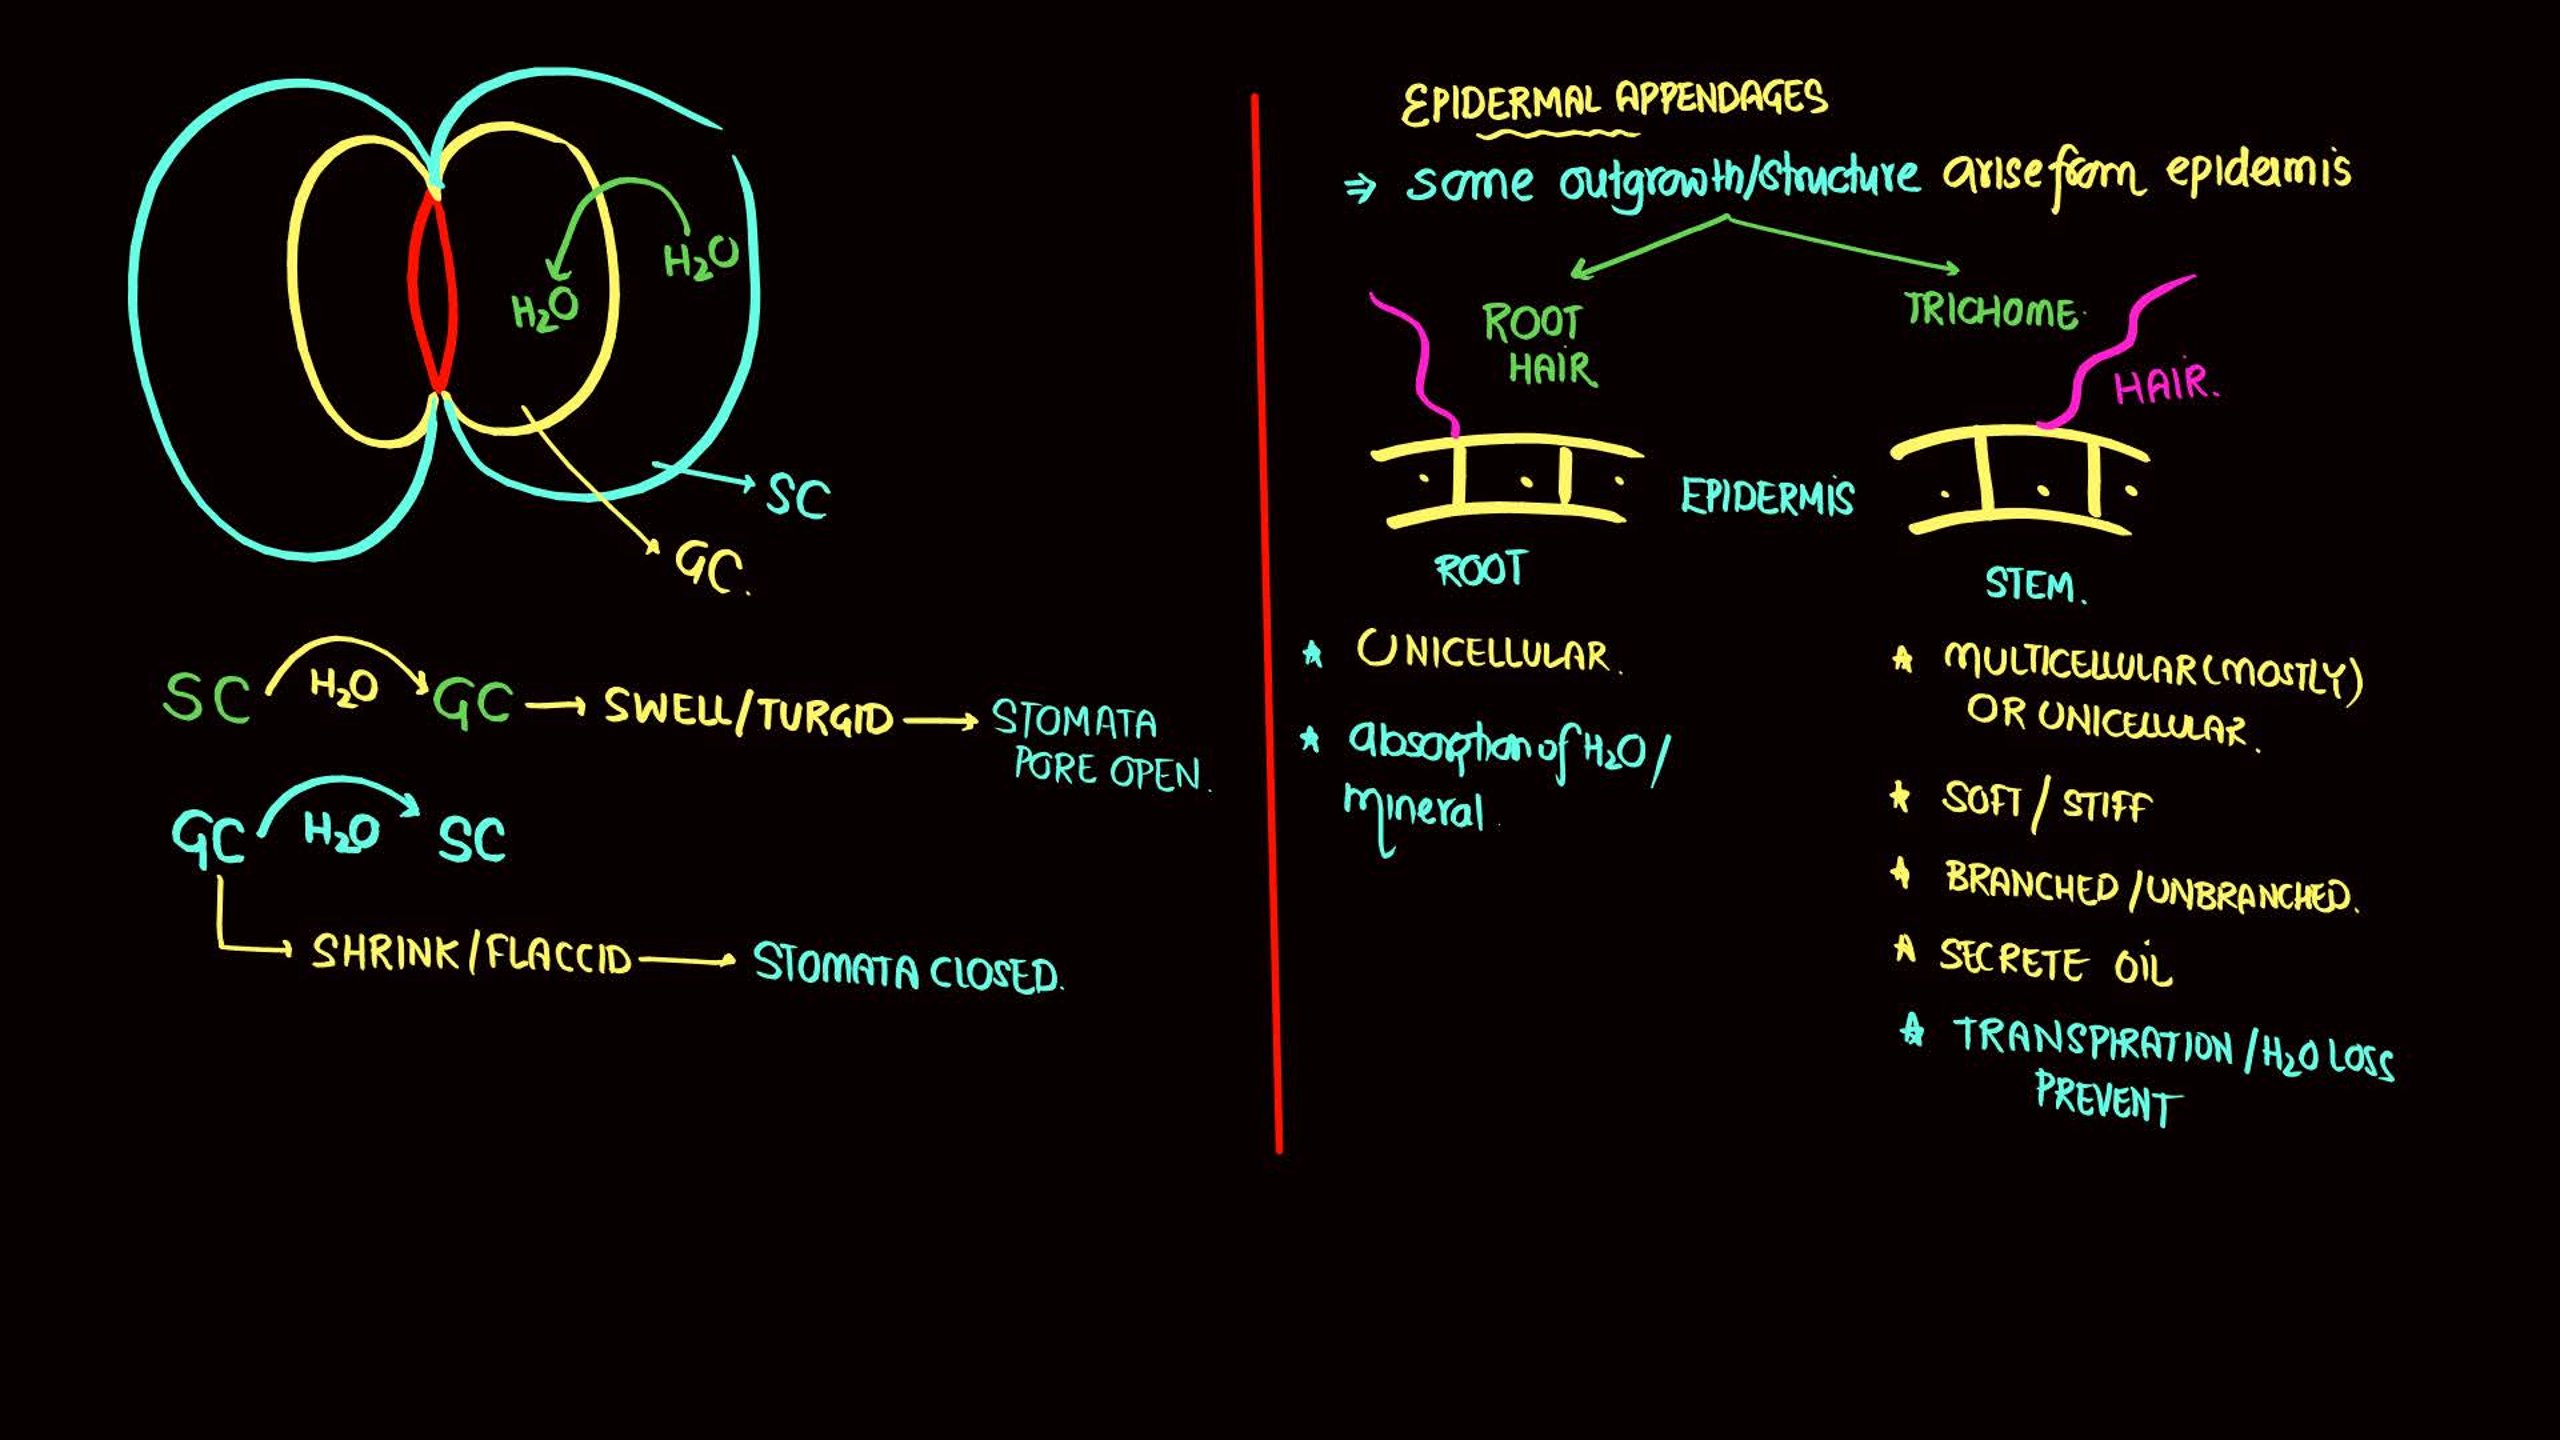 H₂O
H₂O
SC
GC.
SC H₂O GC → SWELL/TURGID → STOMATA
PORE OPEN.
GC H₂O SC
SHRINK/FLACCID → STOMATA CLOSED.
EPIDERMAL APPENDAGES
⇒ some outgrowth/structure arise from epidermis
ROOT
HAIR
TRICHOME
HAIR.
EPIDERMIS
ROOT
STEM.
★ UNICELLULAR.
★ absorption of H₂O/
mineral.
★ MULTICELLULAR (MOSTLY)
OR UNICELLULAR.
★ SOFT / STIFF
★ BRANCHED /UNBRANCHED.
★ SECRETE OIL
★ TRANSPIRATION /H₂O LOSS
PREVENT